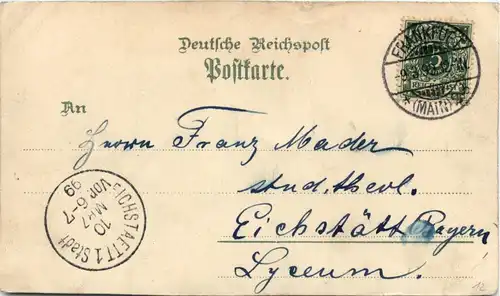 Deutsche Reichspost
Postkarte.
An
Herrn Franz Mader
stud. theol.
Eichstätt Bayern
Lyceum.
FRANKFURT
(MAIN)
5
EICHSTAETT 1 Stadt
10
MRZ
VOR 6-7
99
12